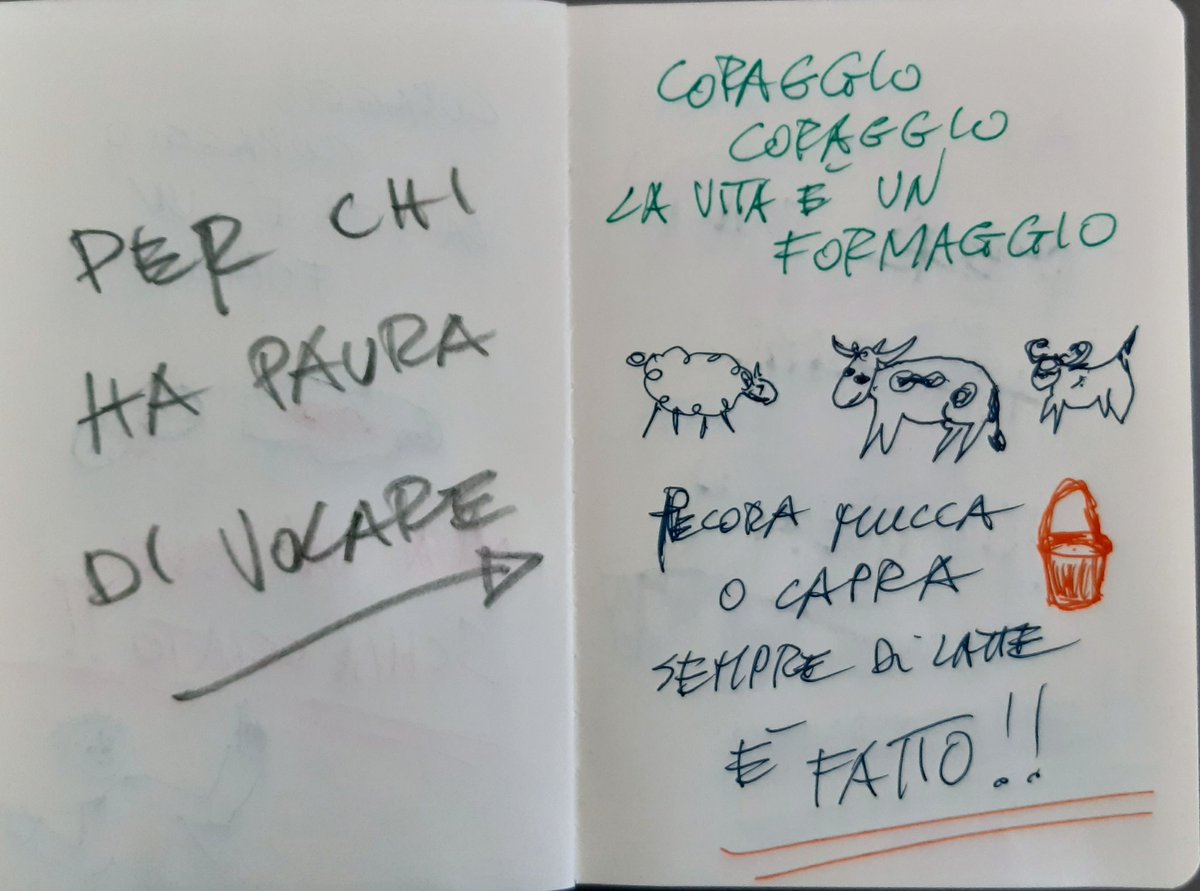 PER CHI
HA PAURA
DI VOLARE
CORAGGIO
CORAGGIO
LA VITA È UN
FORMAGGIO
PECORA MUCCA
O CAPRA
SEMPRE DI LATTE
È FATTO!!